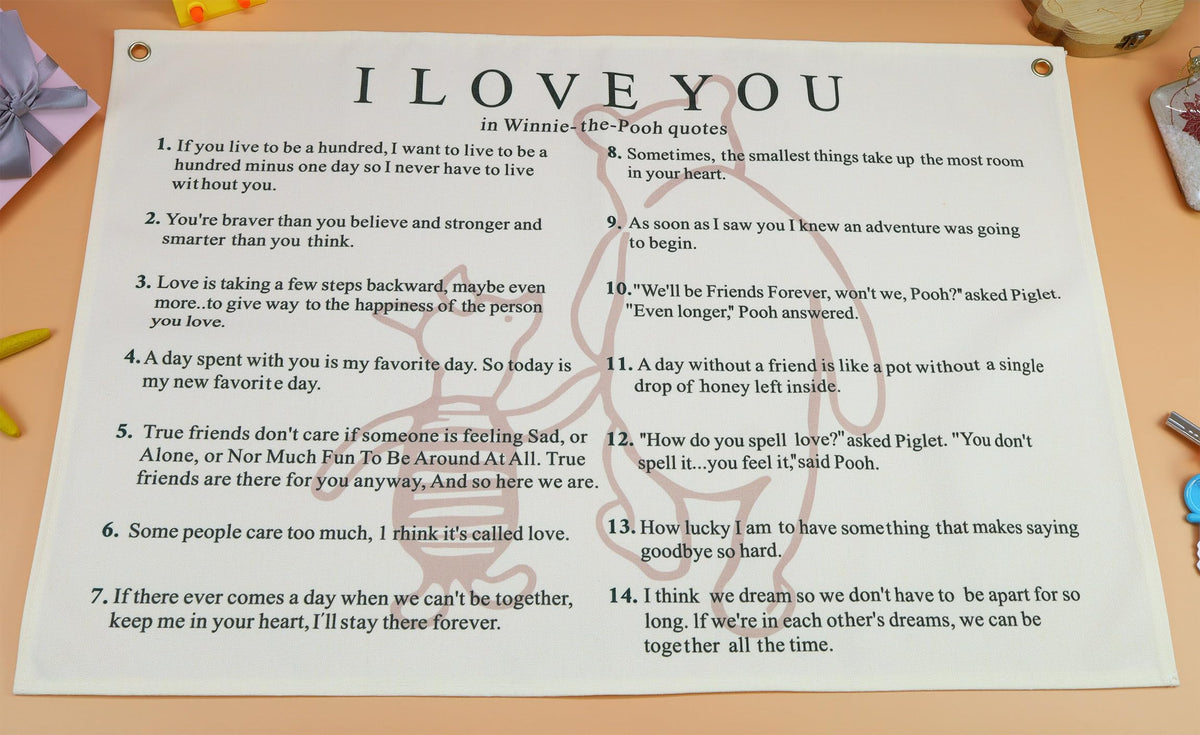 I LOVE YOU
in Winnie-the-Pooh quotes
1. If you live to be a hundred, I want to live to be a
hundred minus one day so I never have to live
without you.
2. You're braver than you believe and stronger and
smarter than you think.
3. Love is taking a few steps backward, maybe even
more..to give way to the happiness of the person
you love.
4. A day spent with you is my favorite day. So today is
my new favorite day.
5. True friends don't care if someone is feeling Sad, or
Alone, or Nor Much Fun To Be Around At All. True
friends are there for you anyway, And so here we are.
6. Some people care too much, 1 rhink it's called love.
7. If there ever comes a day when we can't be together,
keep me in your heart, I'll stay there forever.
8. Sometimes, the smallest things take up the most room
in your heart.
9. As soon as I saw you I knew an adventure was going
to begin.
10. "We'll be Friends Forever, won't we, Pooh?" asked Piglet.
"Even longer," Pooh answered.
11. A day without a friend is like a pot without a single
drop of honey left inside.
12. "How do you spell love?" asked Piglet. "You don't
spell it...you feel it," said Pooh.
13. How lucky I am to have something that makes saying
goodbye so hard.
14. I think we dream so we don't have to be apart for so
long. lf we're in each other's dreams, we can be
together all the time.